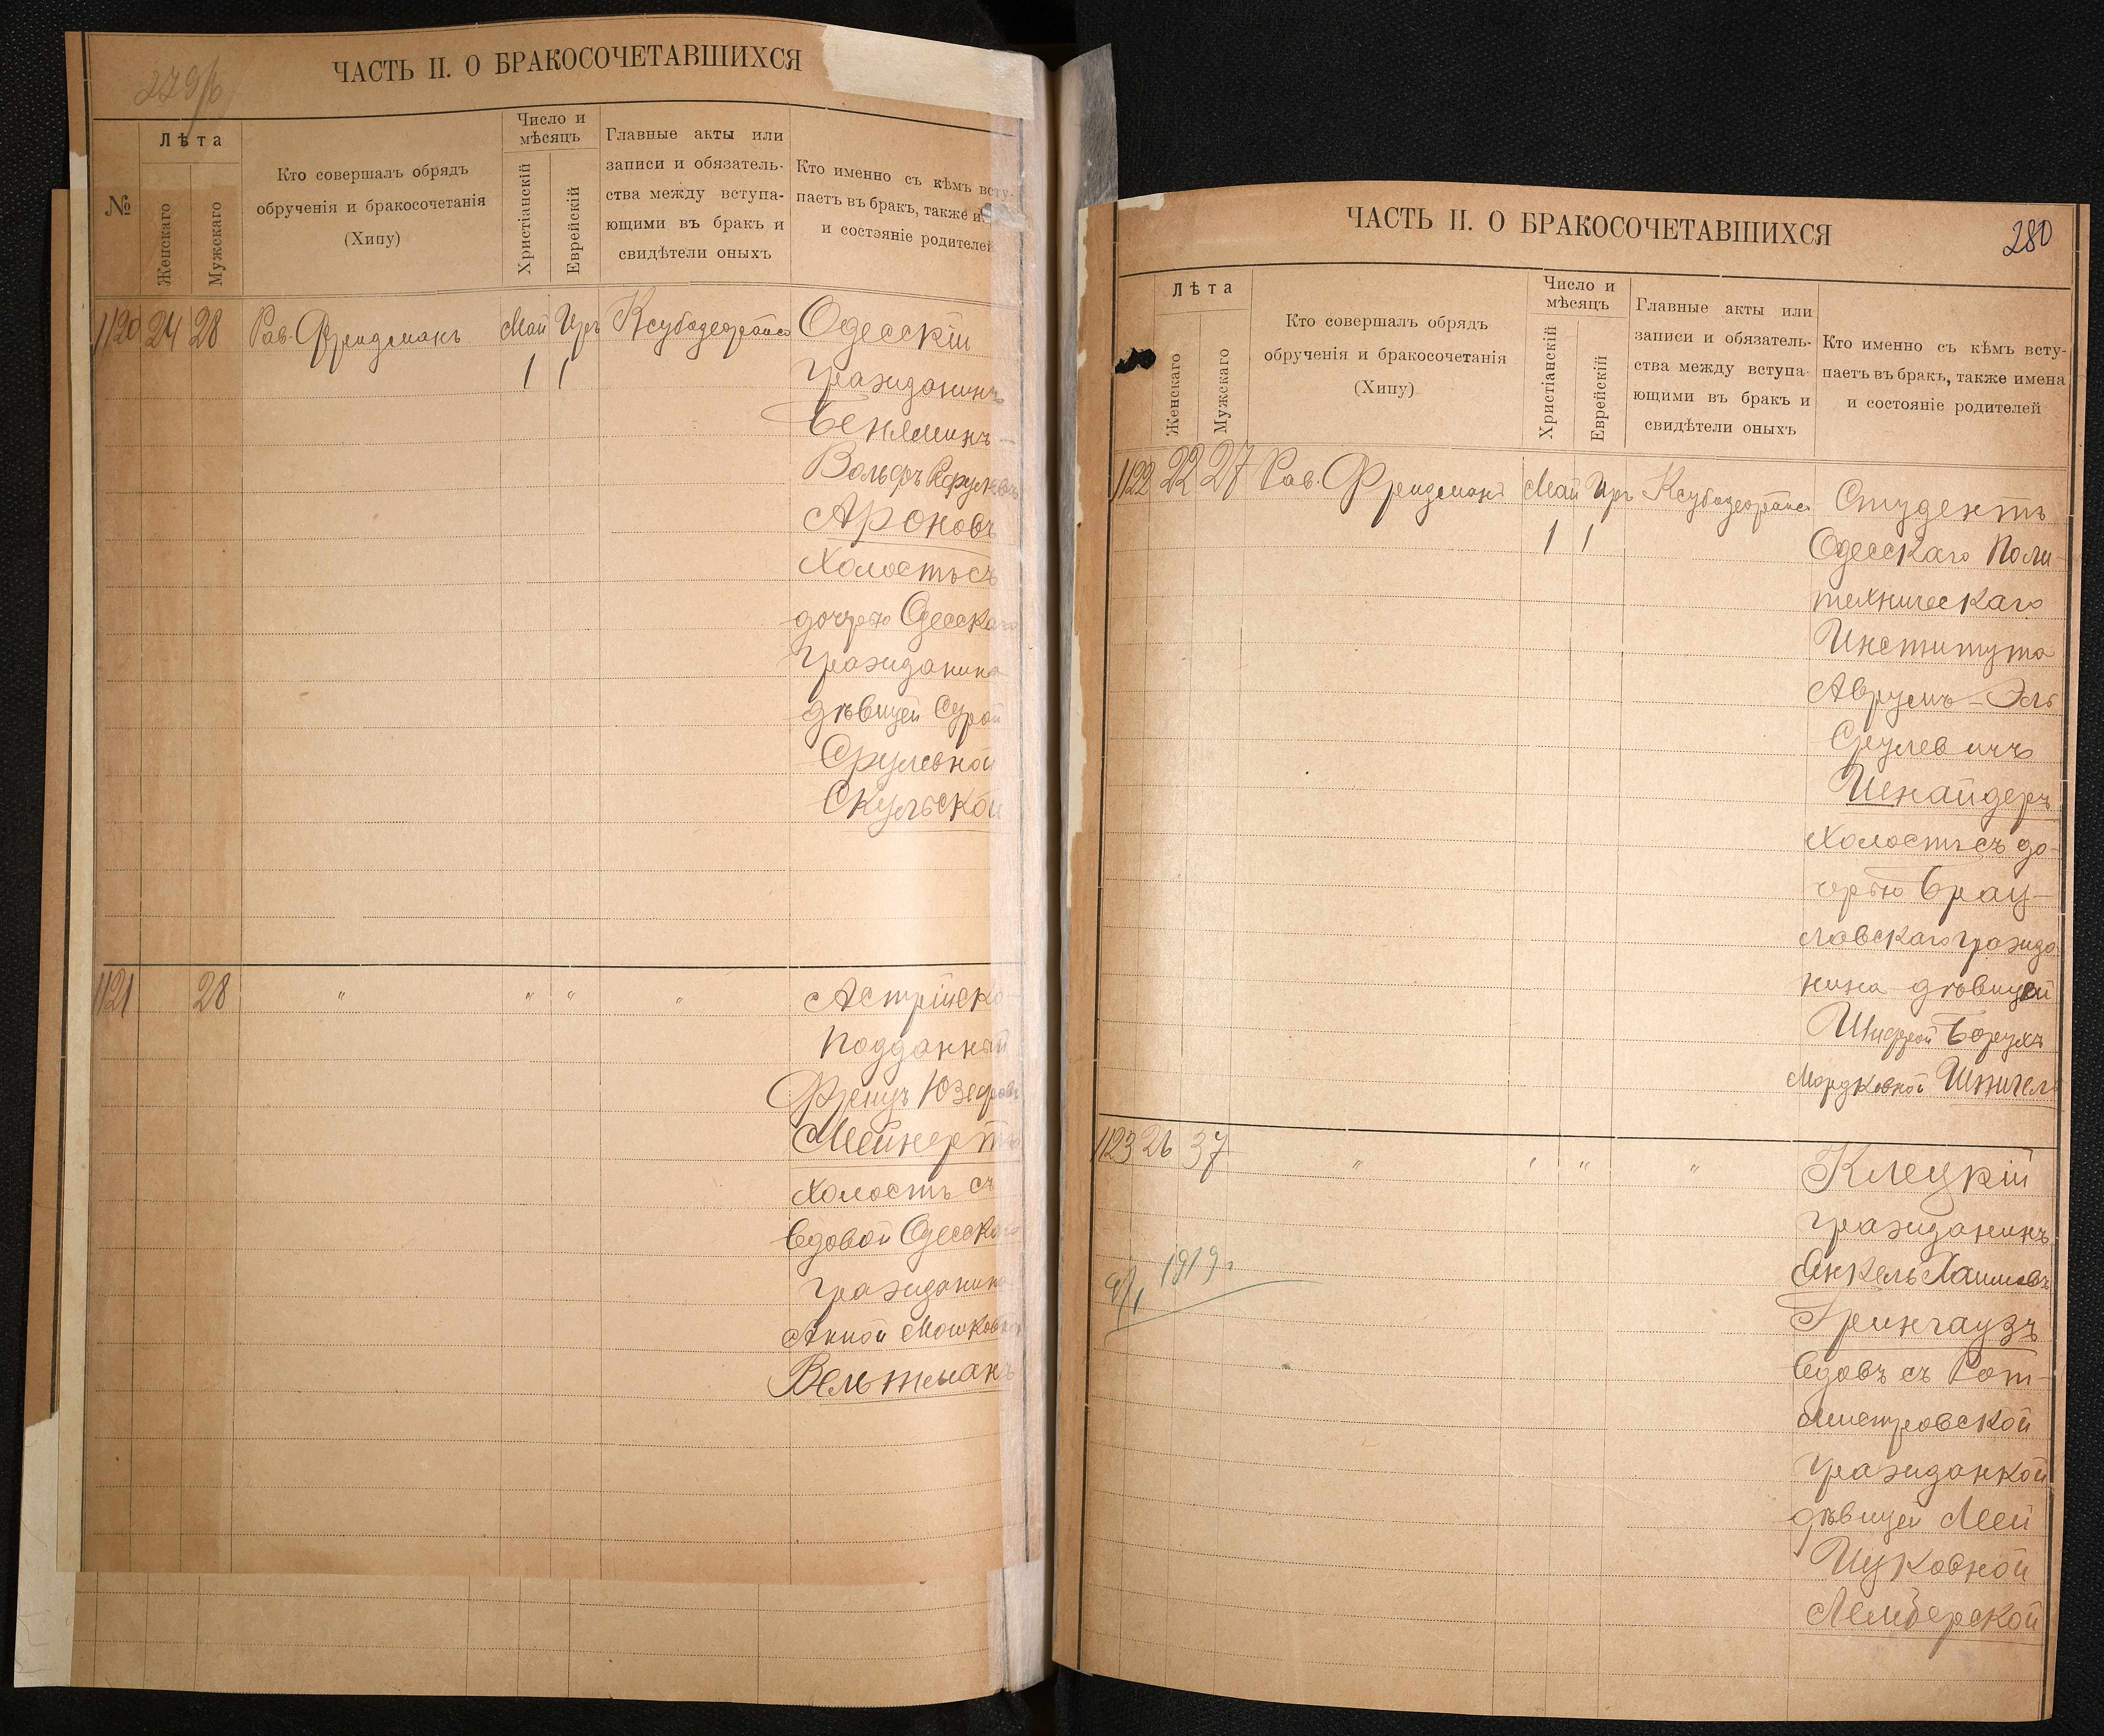 279/б
ЧАСТЬ II. О БРАКОСОЧЕТАВШИХСЯ
№
Лѣта
Женскаго
Мужскаго
Кто совершалъ обрядъ
обрученія и бракосочетанія
(Хипу)
Число и
мѣсяцъ
Христіанскій
Еврейскій
Главные акты или
записи и обязатель-
ства между вступа-
ющими въ бракъ и
свидѣтели оныхъ
Кто именно съ кѣмъ всту-
паетъ въ бракъ, также и
и состояніе родителей
1120 24 28 Рав. Фридманъ Май Иръ Одесскій
1 1 гражданинъ
Беніаминъ-
Вольфъ
Ароновъ
холостъ съ
дочерью Одесскаго
гражданина
дѣвицей Сурой
Срулевной
Скульской
1121 28 " " " " Астрійско-
подданный
Францъ Юзефовъ
Мейнертъ
холостъ съ
вдовой Одесскаго
гражданина
Анной Мошковной
Вельтманъ
ЧАСТЬ II. О БРАКОСОЧЕТАВШИХСЯ
280
Лѣта
Женскаго
Мужскаго
Кто совершалъ обрядъ
обрученія и бракосочетанія
(Хипу)
Число и
мѣсяцъ
Христіанскій
Еврейскій
Главные акты или
записи и обязатель-
ства между вступа-
ющими въ бракъ и
свидѣтели оныхъ
Кто именно съ кѣмъ всту-
паетъ въ бракъ, также имена
и состояніе родителей
1122 22 27 Рав. Фридманъ Май Иръ Студентъ
1 1 Одесскаго Поли-
техническаго
Института
Аврумъ-Эль
Срулевичъ
Шнайдеръ
холостъ съ до-
черью Брац-
лавскаго гражда
нина дѣвицей
Шифрой Борухъ
Мордковной Шпигель
1123 26 37 " " " " Клецкій
гражданинъ
Янкель Хаимовъ
Грингаузъ
вдовъ съ Рот-
мистровской
гражданкой
дѣвицей Леей
Ицковной
Лемберской
9/1 1919 г.